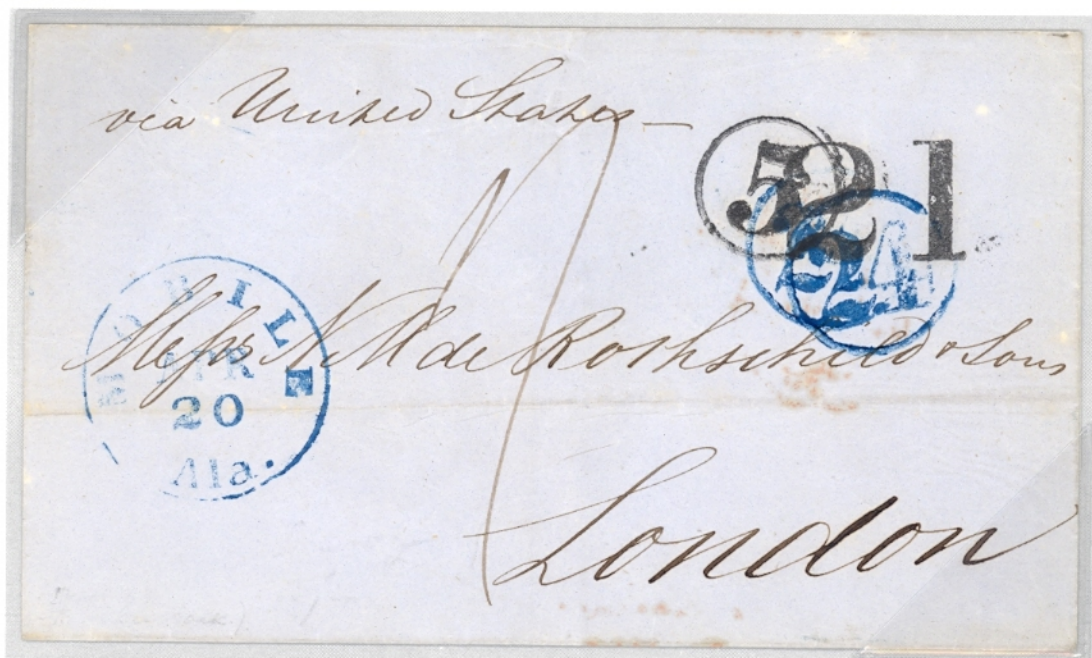 via United States —
5 21
24
MOBILE
APR
20
Ala.
Messrs N M de Rothschild & Sons
London